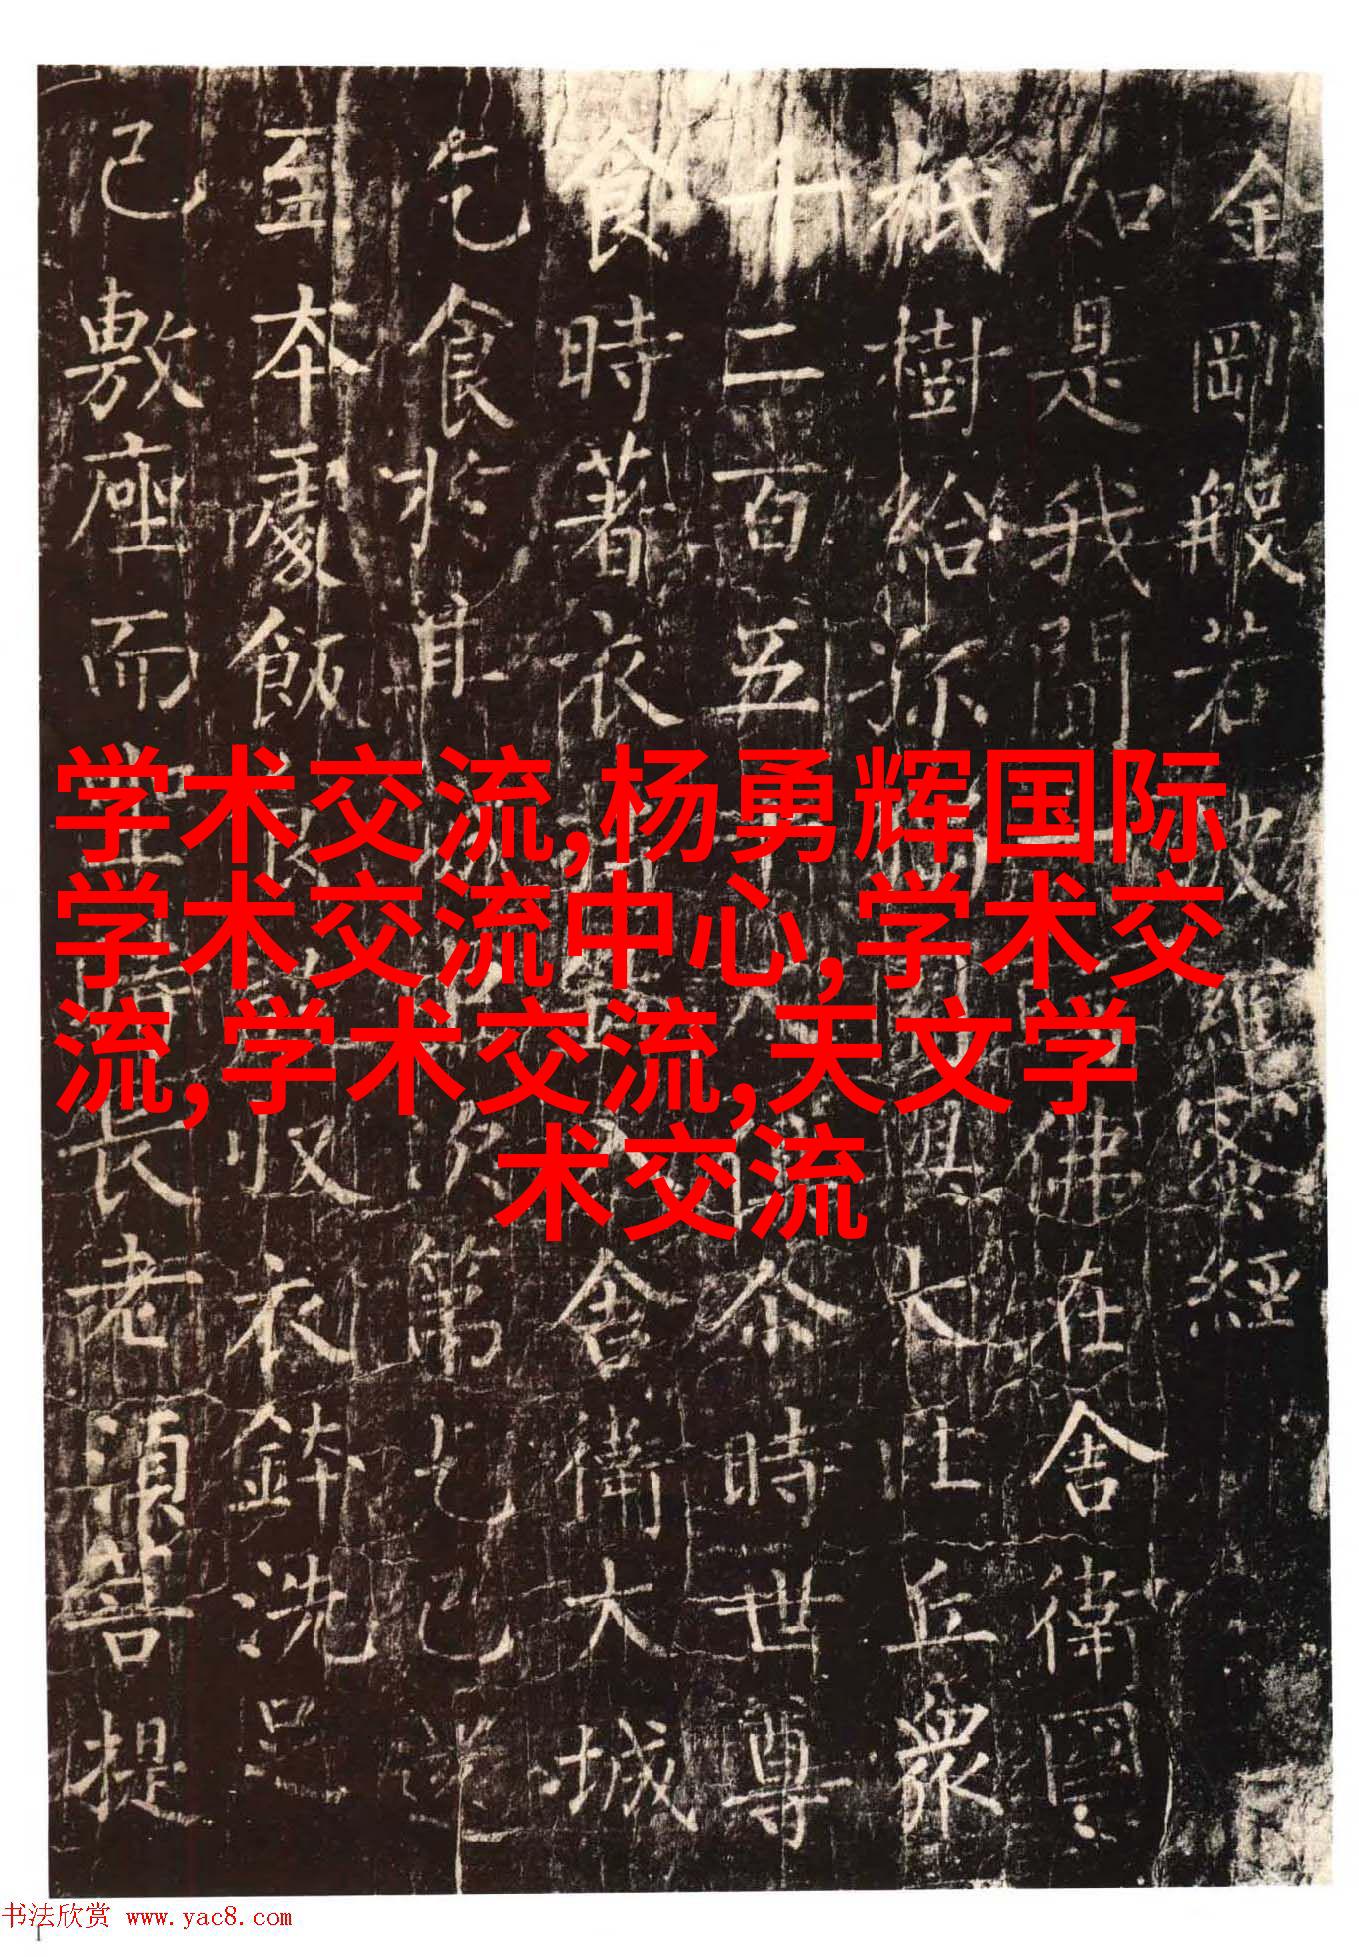 金剛般若波羅蜜經
如是我聞 佛在舍衛國
祇樹給孤 大比丘眾
千二百五 尒時世尊
食時著衣 舍衛大城
乞食於其 次第乞已還
至本處飯 收衣鉢洗足
已敷座而 長老須菩提
学术交流,杨勇辉国际
学术交流中心,学术交
流,学术交流,天文学
术交流
书法欣赏 www.yac8.com